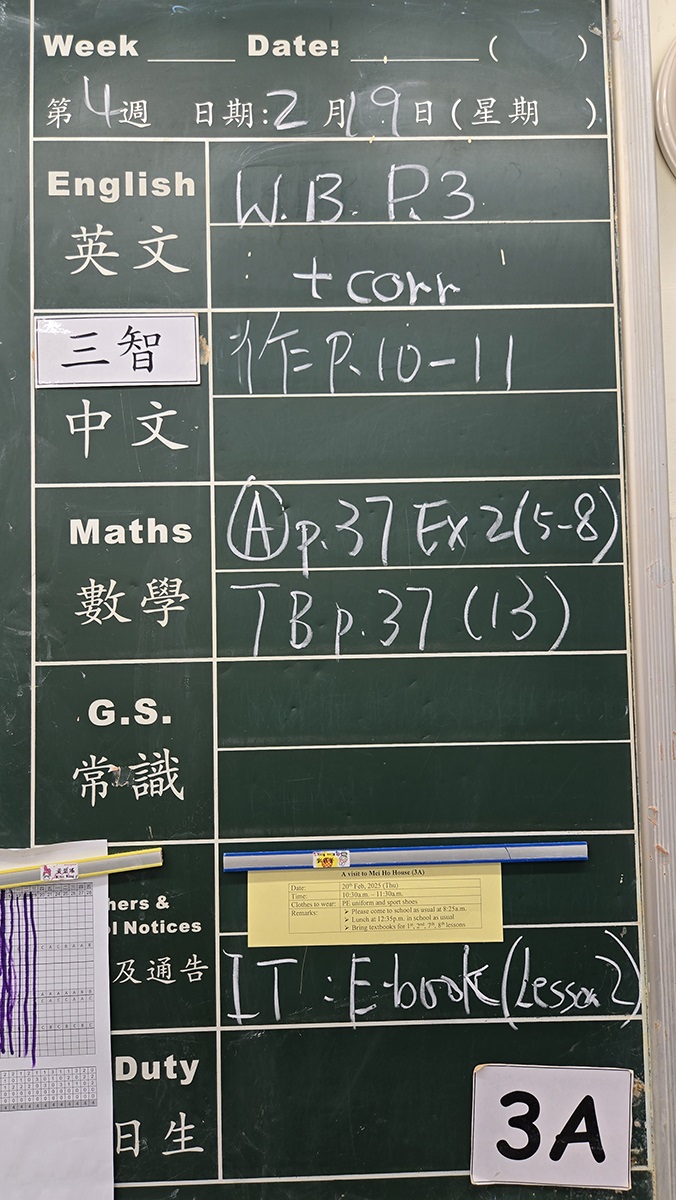 Week ____ Date: ____ ( )
第4週 日期:2月19日(星期 )
English W.B. P.3
英文 + corr
三智 作= P.10-11
中文
Maths Ⓐ p.37 Ex 2(5-8)
數學 TB p.37 (13)
G.S.
常識
A visit to Mei Ho House (3A)
Date: 20th Feb, 2025 (Thu)
Time: 10:30a.m. – 11:30a.m.
Clothes to wear: PE uniform and sport shoes
Remarks: ➤ Please come to school as usual at 8:25a.m.
➤ Lunch at 12:35p.m. in school as usual
➤ Bring textbooks for 1st, 2nd, 7th, 8th lessons
hers &
l Notices
及通告 IT : E-book (Lesson 2)
Duty
日生
3A